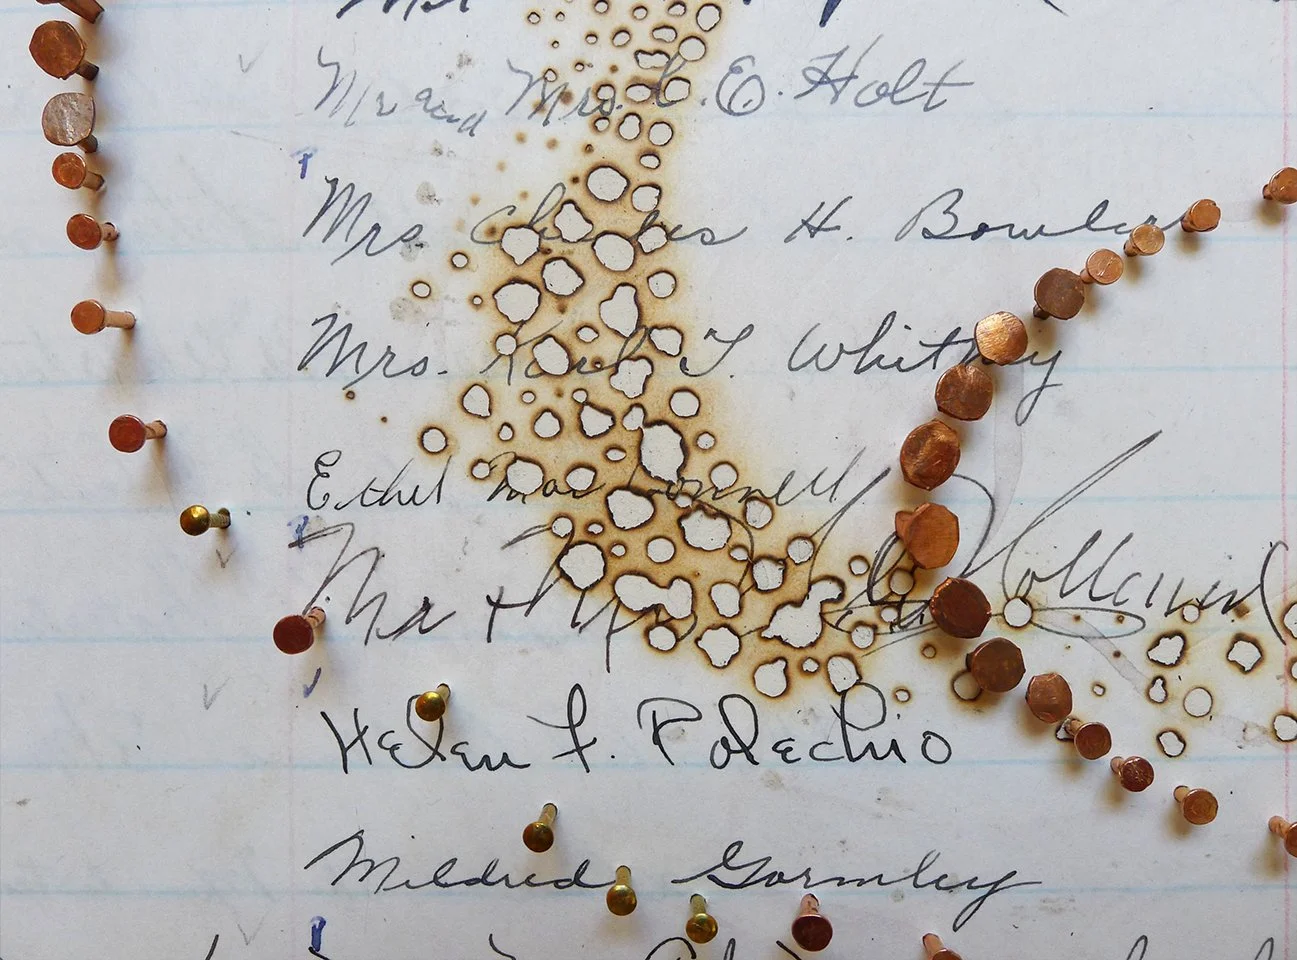 Mr and Mrs. C. E. Holt
Mrs. Charles H. Bowler
Mrs. Karl T. Whitney
Ethel MacConnell
Mr + Mrs Holland
Helen F. Polechio
Mildred Gormley